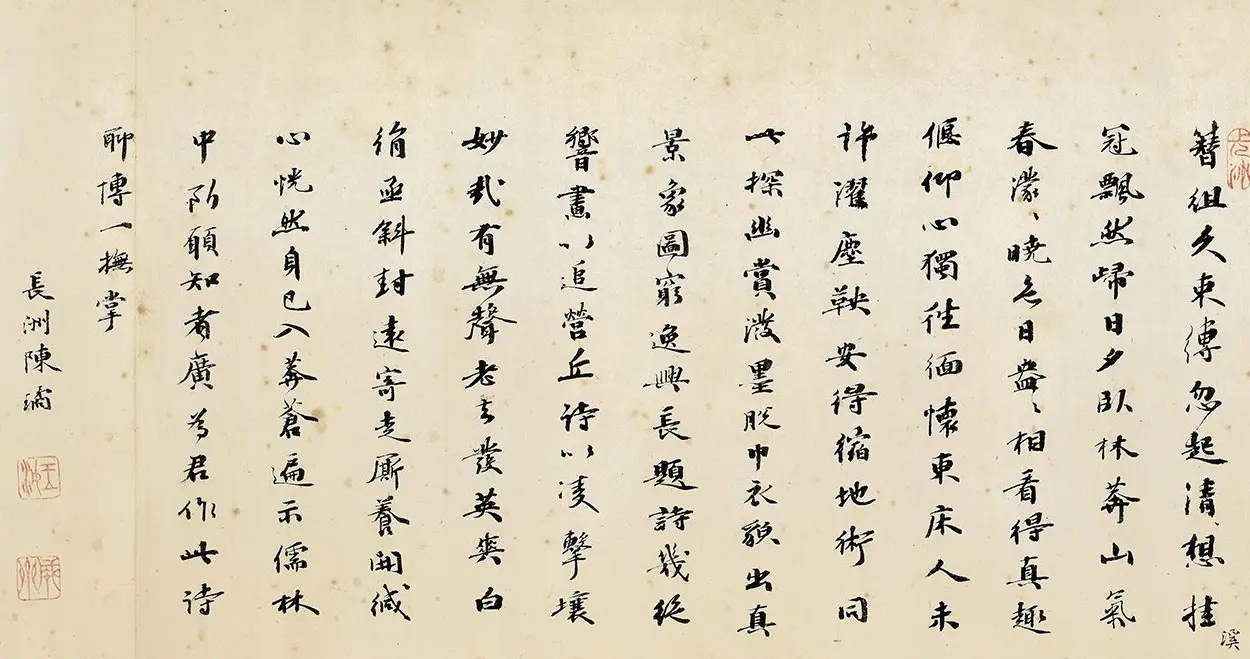 簪組久束縛忽起清想挂
冠飄然歸日夕臥林莽山氣
春濛〻曉色日盎〻相看得真趣
偃仰心獨往緬懷東床人未
許濯塵鞅安得縮地術同
此探幽賞潑墨脫巾衣貌出真
景象圖窮逸興長題詩幾絕
響畫以追營丘詩以淩擊壤
妙哉有無聲老去發英爽白
絹亟斜封遠寄走廝養開緘
心恍然身已入莽蒼遍示儒林
中所願知者廣為君作此詩
聊博一撫掌
長洲陳璚
溪